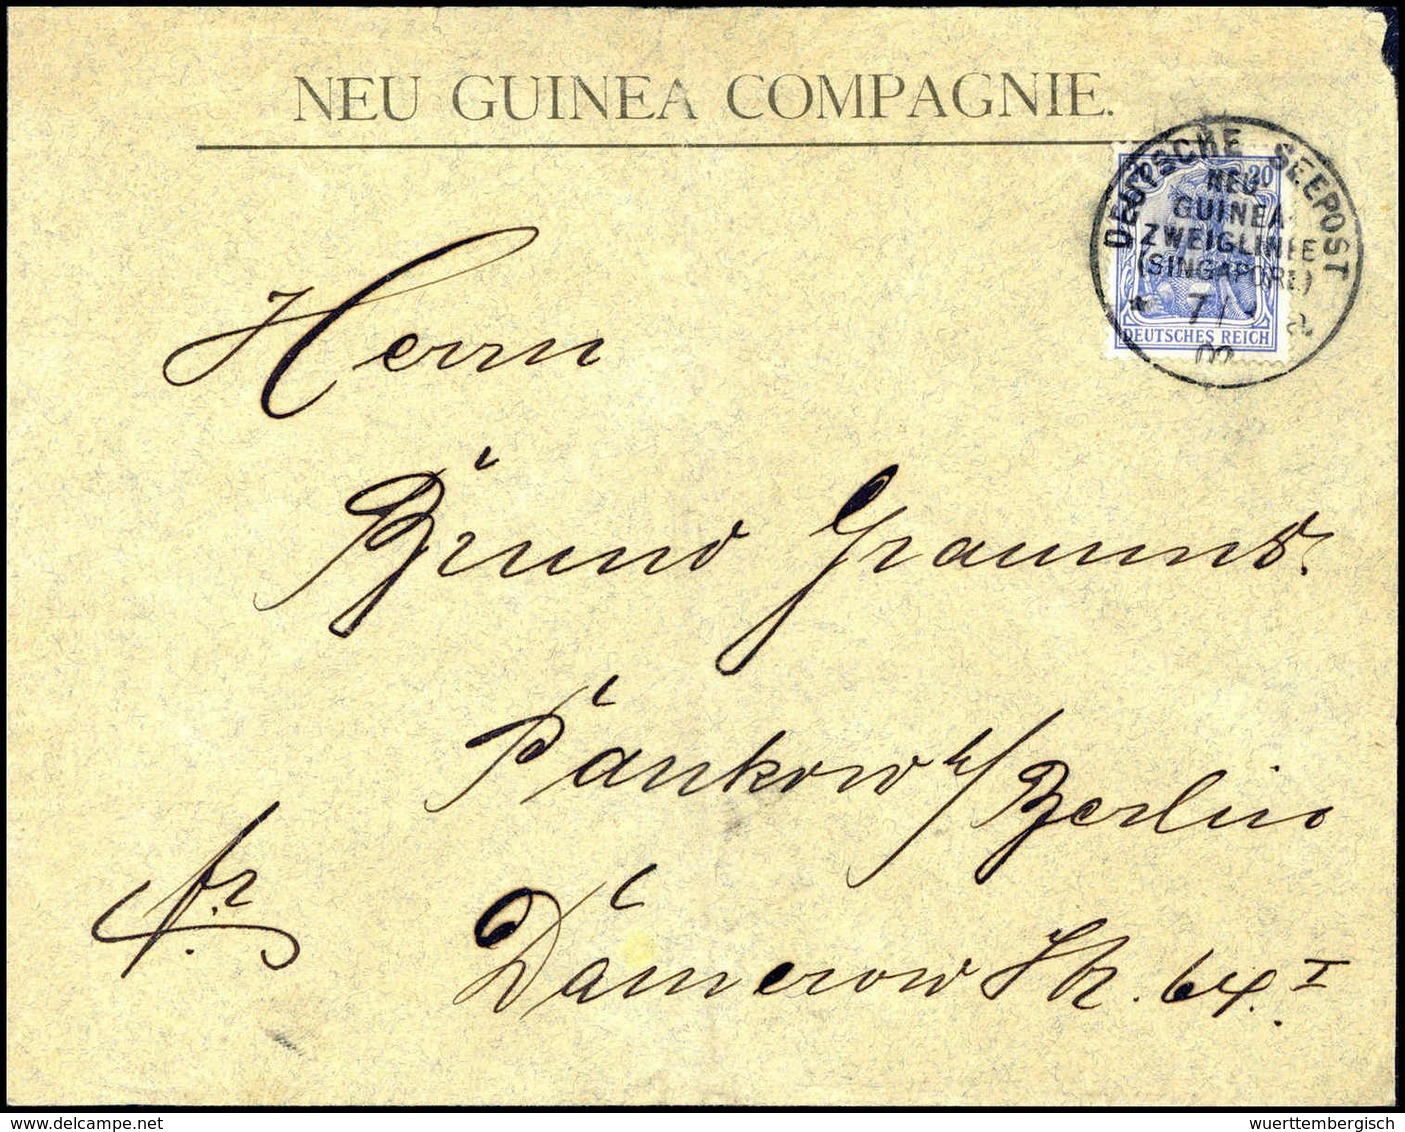 NEU GUINEA COMPAGNIE.
DEUTSCHE SEEPOST
20
NEU-
GUINEA-
ZWEIGLINIE
(SINGAPORE)
* 7/ a
02
DEUTSCHES REICH
Herrn
Bruno Gramms.
Pankow b/Berlin
fr.
Damerow Str. 64.I
wuerttembergisch